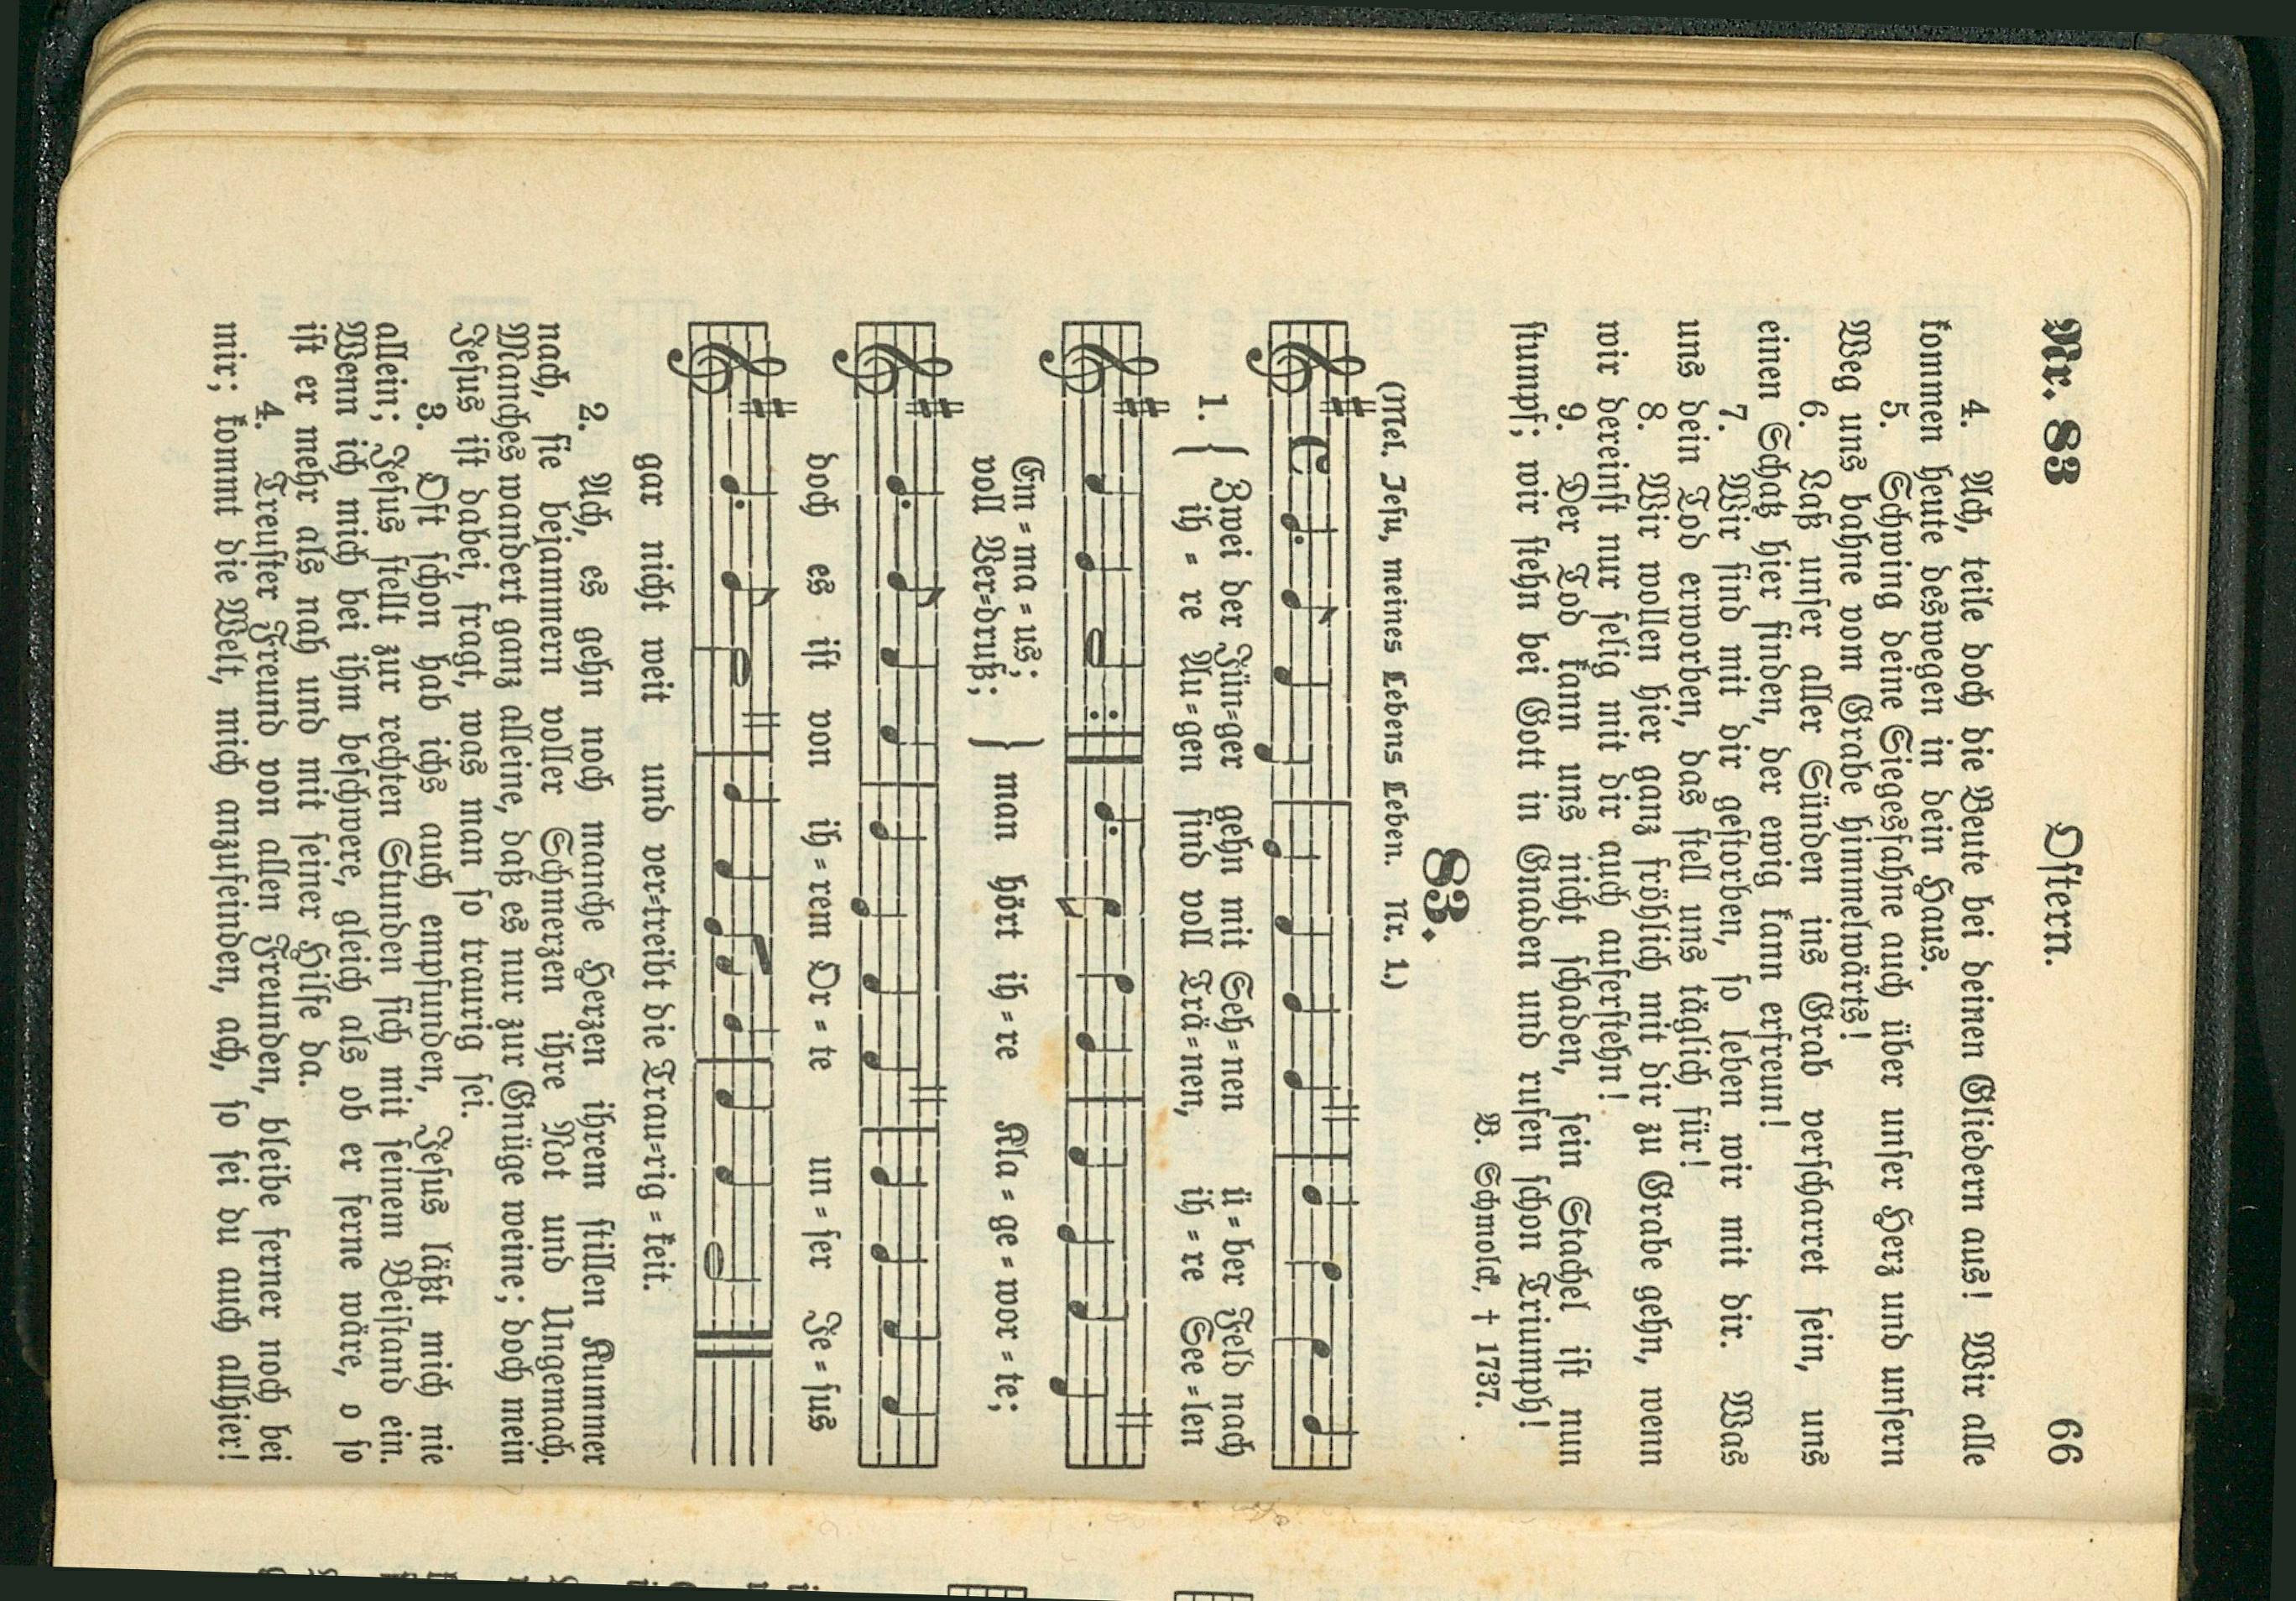 Nr. 83 Ostern. 66
4. Ach, teile doch die Beute bei deinen Gliedern aus! Wir alle
kommen heute deswegen in dein Haus.
5. Schwing deine Siegesfahne auch über unser Herz und unsern
Weg uns bahne vom Grabe himmelwärts!
6. Laß unser aller Sünden ins Grab verscharret sein, uns
einen Schatz hier finden, der ewig kann erfreun!
7. Wir sind mit dir gestorben, so leben wir mit dir. Was
uns dein Tod erworben, das stell uns täglich für!
8. Wir wollen hier ganz fröhlich mit dir zu Grabe gehn, wenn
wir dereinst nur selig mit dir auch auferstehn!
9. Der Tod kann uns nicht schaden, sein Stachel ist nun
stumpf; wir stehn bei Gott in Gnaden und rufen schon Triumph!
B. Schmolck, † 1737.
83.
(Mel. Jesu, meines Lebens Leben. Nr. 1.)
1. { Zwei der Jün=ger gehn mit Seh=nen ü=ber Feld nach
ih=re Au=gen sind voll Trä=nen, ih=re See=len
Em=ma=us;
voll Ver=druß; } man hört ih=re Kla=ge=wor=te;
doch es ist von ih=rem Or=te un=ser Je=sus
gar nicht weit und ver=treibt die Trau=rig=keit.
2. Ach, es gehn noch manche Herzen ihrem stillen Kummer
nach, sie bejammern voller Schmerzen ihre Not und Ungemach.
Manches wandert ganz alleine, daß es nur zur Gnüge weine; doch mein
Jesus ist dabei, fragt, was man so traurig sei.
3. Oft schon hab ichs auch empfunden, Jesus läßt mich nie
allein; Jesus stellt zur rechten Stunden sich mit seinem Beistand ein.
Wenn ich mich bei ihm beschwere, gleich als ob er ferne wäre, o so
ist er mehr als nah und mit seiner Hilfe da.
4. Treuster Freund von allen Freunden, bleibe ferner noch bei
mir; kommt die Welt, mich anzufeinden, ach, so sei du auch allhier!